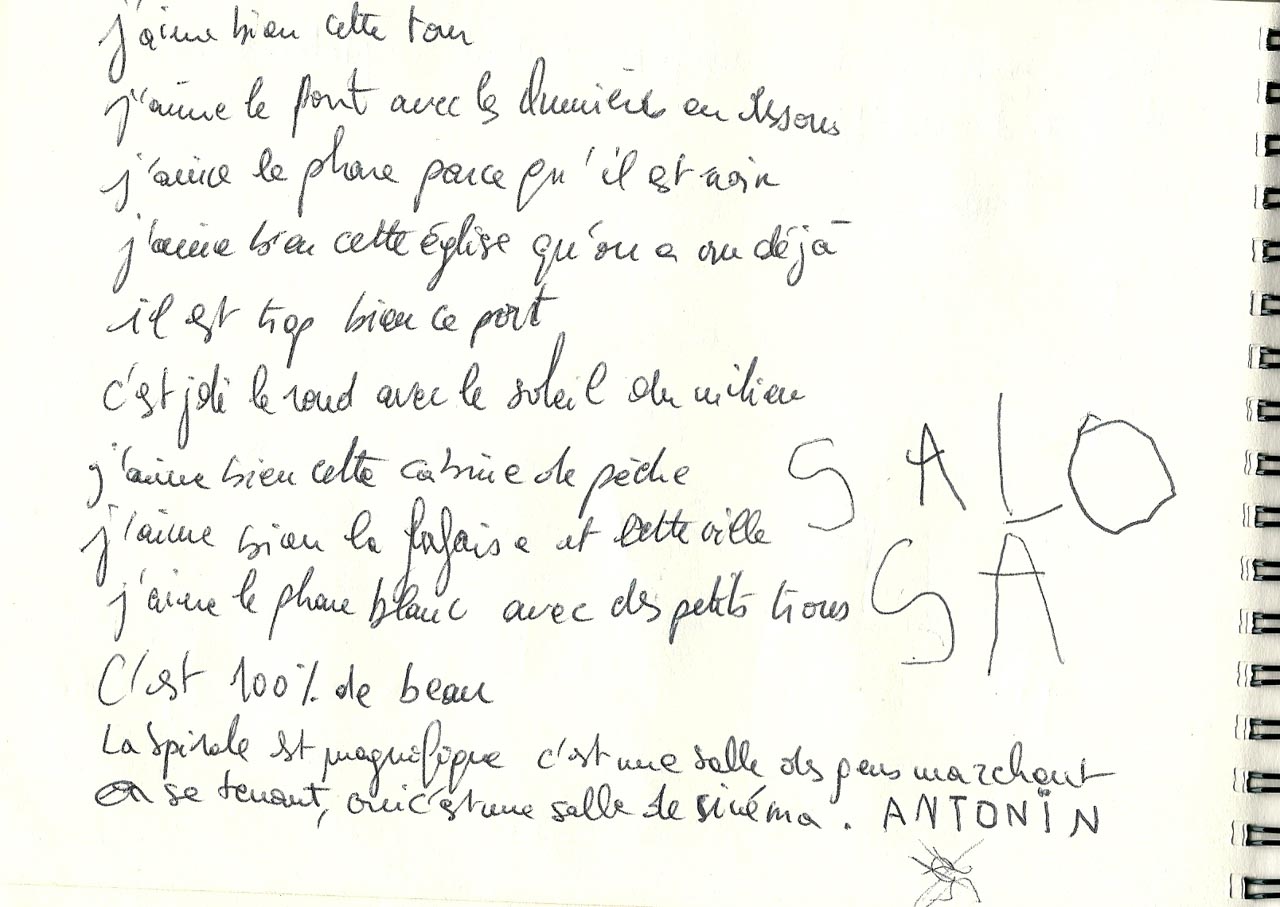 j'aime bien cette tour
j'aime le pont avec les lumières en dessous
j'aime le phare parce qu'il est noir
j'aime bien cette église qu'on a vu déjà
il est trop bien ce port
c'est joli le rond avec le soleil du milieu
j'aime bien cette cabine de pêche
SALO
j'aime bien la falaise et cette ville
SA
j'aime le phare blanc avec des petits trous
C'est 100% de beau
La spirale est magnifique c'est une salle des gens marchant
en se tenant, oui c'est une salle de sinéma. ANTONÏN